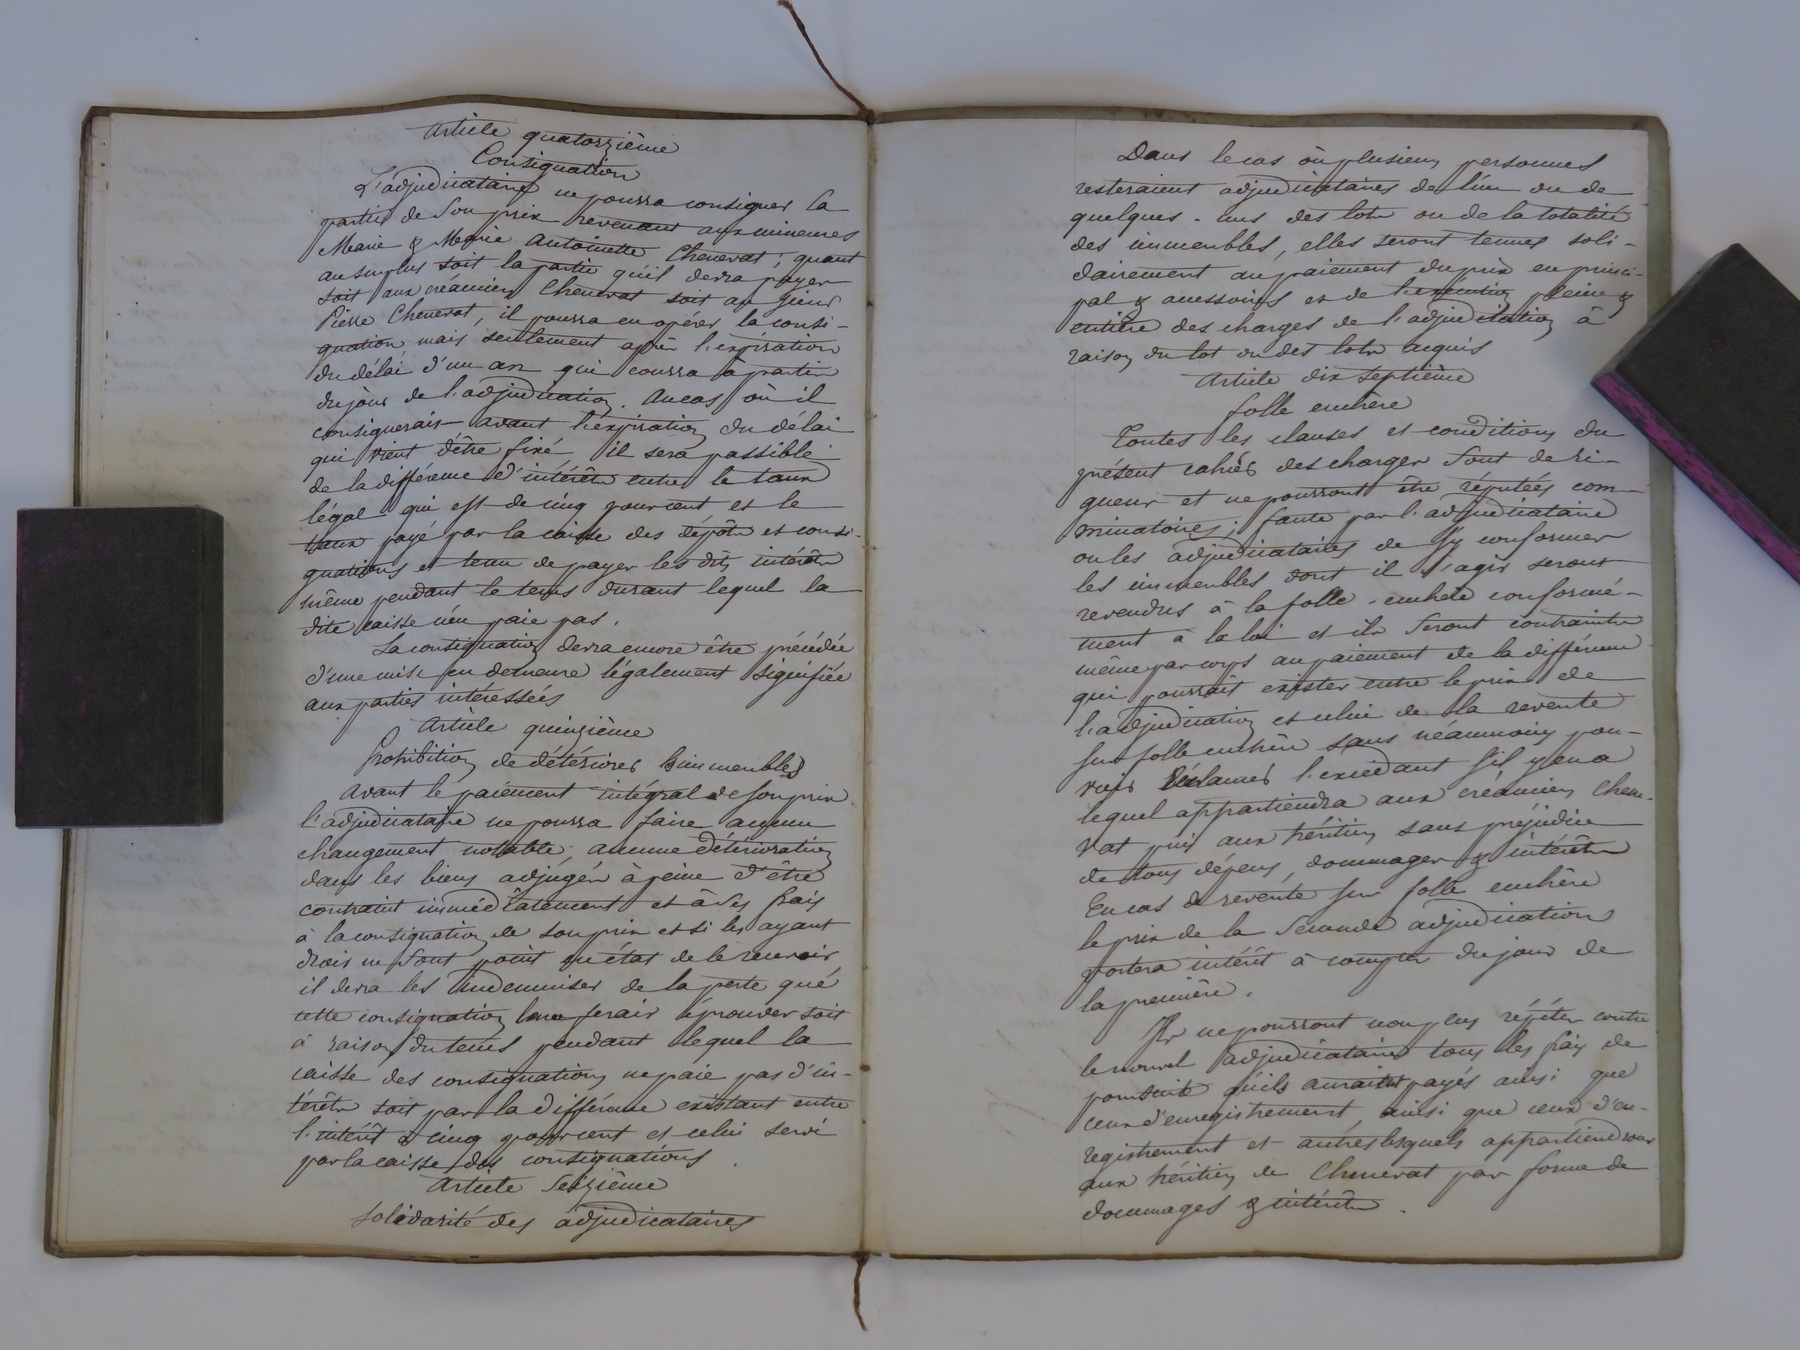 Article quatorzième
Consignation
L'adjudicataire ne pourra consigner la
partie de son prix revenant aux mineures
Marie & Marie Antoinette Chenevat ; quant
au surplus soit la partie qu'il devra payer
soit aux créanciers Chenevat soit au sieur
Pierre Chenevat, il pourra en opérer la consi-
gnation mais seulement après l'expiration
du délai d'un an qui courra à partir
du jour de l'adjudication. Au cas où il
consignerait avant l'expiration du délai
qui vient d'être fixé, il sera passible
de la différence d'intérêts entre le taux
légal qui est de cinq pour cent et le
taux payé par la caisse des dépôts et consi-
gnations et tenu de payer les dits intérêts
même pendant le tems durant lequel la
dite caisse n'en paie pas.
La consignation devra encore être précédée
d'une mise en demeure légalement signifiée
aux parties intéressées
Article quinzième
Prohibition de détériorer les immeubles
Avant le paiement intégral de son prix
l'adjudicataire ne pourra faire aucun
changement notable, aucune détérioration
dans les biens adjugés à peine d'être
contraint immédiatement et à ses frais
à la consignation de son prix et si les ayant
droit ne sont point en état de le recevoir
il devra les indemniser de la perte que
cette consignation leur ferait éprouver soit
à raison du tems pendant lequel la
caisse des consignations ne paie pas d'in-
térêts soit par la différence existant entre
l'intérêt à cinq pour cent et celui servi
par la caisse des consignations
Article seizième
solidarité des adjudicataires
Dans le cas où plusieurs personnes
resteraient adjudicataires de l'un ou de
quelques-uns des lots ou de la totalité
des immeubles, elles seront tenues soli-
dairement au paiement du prix en princi-
pal & accessoires et de l'exécution pleine &
entière des charges de l'adjudication à
raison du lot ou des lots acquis
Article dix septième
folle enchère
Toutes les clauses et conditions du
présent cahier des charges sont de ri-
gueur et ne pourront être réputées com-
minatoires ; faute par l'adjudicataire
ou les adjudicataires de s'y conformer
les immeubles dont il s'agit seront
revendus à la folle-enchère conformé-
ment à la loi et ils seront contraints
même par corps au paiement de la différence
qui pourrait exister entre le prix de
l'adjudication et celui de la revente
sur folle enchère sans néanmoins pou-
voir réclamer l'excédant s'il y en a
lequel appartiendra aux créanciers Chene-
vat puis aux héritiers sans préjudice
de tous dépens, dommages & intérêts
En cas de revente sur folle enchère
le prix de la seconde adjudication
portera intérêt à compter du jour de
la première.
Ils ne pourront non plus répéter contre
le nouvel adjudicataire tous les frais de
poursuite qu'ils auraient payés ainsi que
ceux d'enregistrement ainsi que ceux d'en-
registrement et autres lesquels appartiendront
aux héritiers de Chenevat par forme de
dommages & intérêts.